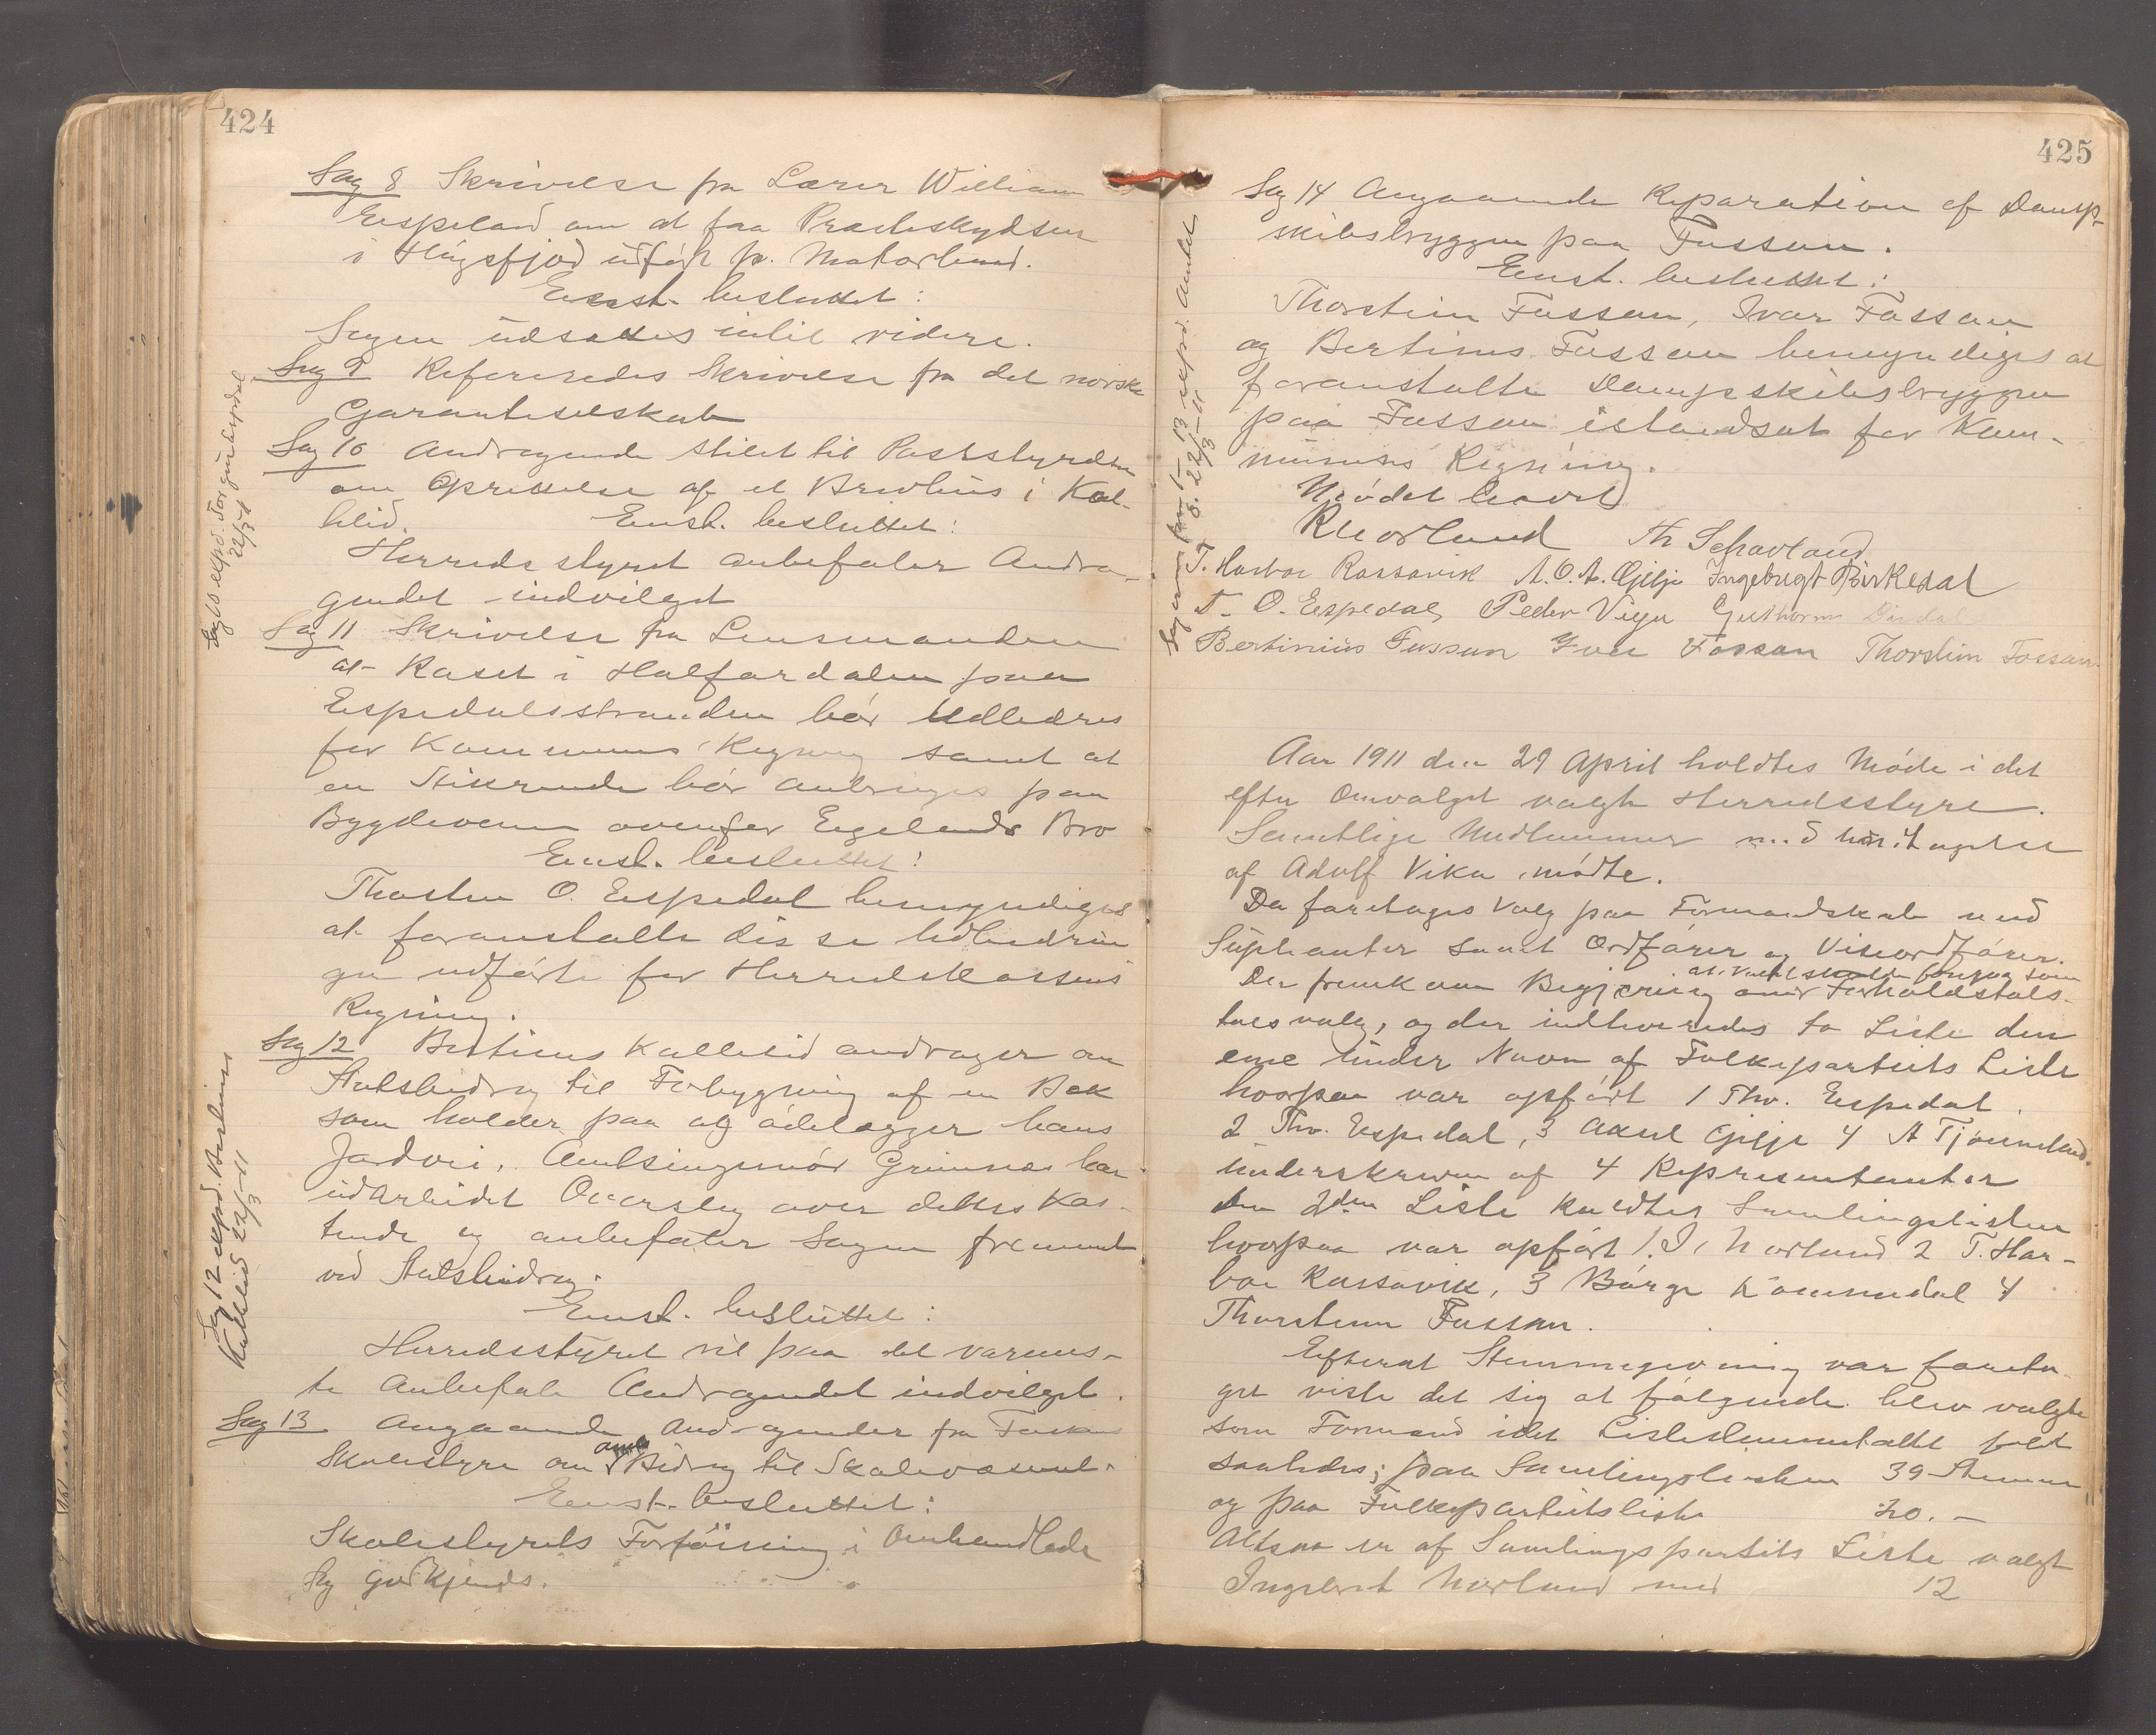 424
Sag 8 Skrivelse fra Lærer William
Eispeland om at faa Presteskydsen
i Høgsfjord udført pr. Motorbaad.
Enst. besluttet:
Sagen udsattes intil videre.
Sag 9 Refereredes Skrivelse fra det norske
Garantiselskab
Sag 10 Andragende stilet til Poststyrelsen
om Oprettelse af et Brevhus i Kal-
lelid. Enst. besluttet:
Herredsstyret anbefaler Andra-
gendet indvilget
Sag 11 Skrivelse fra Lensmanden
at Raset i Halfardalen paa
Espedalsstranden bør Udbedres
for Kommunens Regning samt at
en Stikrende bør anbringes paa
Bygdeveien ovenfor Eigelands Bro
Enst. besluttet:
Thosten O. Espedal bemyndiges
at foranstalte disse Udbedrin
ger udførte for Herredskassens
Regning.
Sag 12 Bertinus Kallelid andrager om
Statsbidrag til Forbygning af en Bæk
som holder paa at ødelægger hans
Jordvei. Amtsingeniør Grimnæs har
udarbeidet Overslag over dettes Kos-
tende og anbefaler Sagen fremmet
ved Statsbidrag.
Enst. besluttet:
Herredsstyret vil paa det varmes-
te Anbefale Andragendet indvilget.
Sag 13 Angaaende Andragender fra Fossans
Skolestyre om Amts Bidrag til Skolevæsenet.
Enst. besluttet:
Skolestyrets Forføining i Omhandlede
Sag godkjendes.
Sag 10 expd. Torgeir Espedal
22/3 11
Sag 12 expd. Bertinus
Kallelid 22/3 - 11
425
Sag 14 Angaaende Reparation af Damp-
skibsbryggen paa Fossan.
Enst. besluttet:
Thorstein Fossan, Ivar Fossan
og Bertinus Fossan bemyndiges at
foranstalte Dampskibsbryggen
paa Fossan istandsat for Kom-
munens Regning.
Mødet hævet
R Norland Th Schavland
T. Harboe Rossavik A. O. A. Gilje Ingebrigt Birkedal
T. O. Espedal, Peder Vigu Guthorm Dirdal
Bertinius Fossan Iver Fossan Thorstein Fossan
13 expd. Amtet
22/3 - 11
Aar 1911 den 29 April holdtes Møde i det
efter Omvalget valgte Herredsstyre.
Samtlige Medlemmer med Untagelse
af Adolf Vika, mødte.
Da foretages Valg paa Formandskab med
Suplianter samt Ordfører og Viseordfører.
at Valget skulde foregaa som
Der fremkom Begjæring om Forholdstals-
talsvalg, og der indleveredes to Liste den
ene under Navn af Folkepartiets Liste
hvorpaa var opført 1 Thv. Espedal.
2 Thv. Espedal, 3 Aksel Gilje 4 A Tjønneland.
Underskreven af 4 Representanter
den 2den Liste kaldtes Samlingslisten
hvorpaa var opført 1. I. Norland 2 T. Har-
boe Rossavik, 3 Børge Kommedal 4
Thorstein Fossan.
Efterat Stemmegivning var foreta
get viste det sig at følgende blev valgte
som Formænd idet Listestemmetallet faldt
saaledes; paa Samlingslisten 39 Stemmer
og paa Folkepartietsliste 20. —
Altsaa er af Samlingspartiets Liste valgt
Ingebret Norland med 12